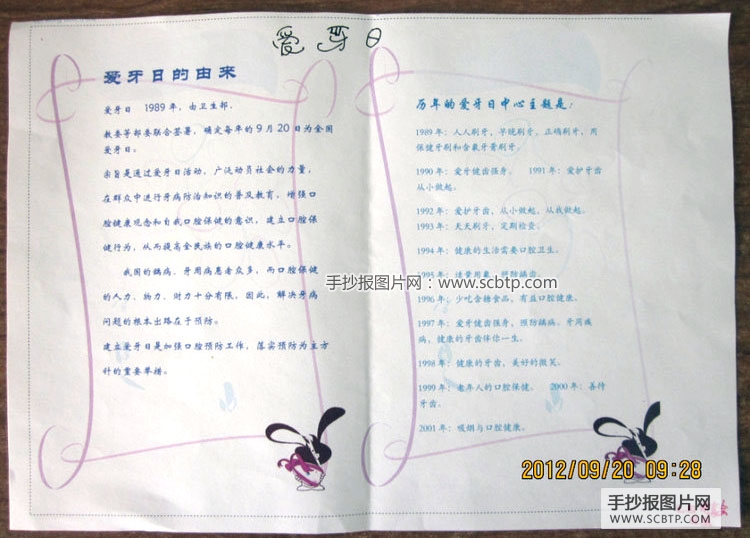 爱牙日
爱牙日的由来
爱牙日 1989年，由卫生部、
教委等部委联合签署，确定每年的9月20日为全国
爱牙日。
宗旨是通过爱牙日活动，广泛动员社会的力量，
在群众中进行牙病防治知识的普及教育，增强口
腔健康观念和自我口腔保健的意识，建立口腔保
健行为，从而提高全民族的口腔健康水平。
我国的龋病、牙周病患者众多，而口腔保健
的人力、物力、财力十分有限，因此，解决牙病
问题的根本出路在于预防。
建立爱牙日是加强口腔预防工作，落实预防为主方
针的重要举措。
历年的爱牙日中心主题是：
1989年：人人刷牙，早晚刷牙，正确刷牙，用
保健牙刷和含氟牙膏刷牙。
1990年：爱牙健齿强身。 1991年：爱护牙齿
从小做起。
1992年：爱护牙齿，从小做起，从我做起。
1993年：天天刷牙，定期检查。
1994年：健康的生活需要口腔卫生。
1995年：适量用氟，预防龋齿。
1996年：少吃含糖食品，有益口腔健康。
1997年：爱牙健齿强身，预防龋病、牙周疾
病，健康的牙齿伴你一生。
1998年：健康的牙齿，美好的微笑。
1999年：老年人的口腔保健。 2000年：善待
牙齿。
2001年：吸烟与口腔健康。
手抄报图片网：www.scbtp.com
2012/09/20 09:28
手抄报图片网
WWW.SCBTP.COM